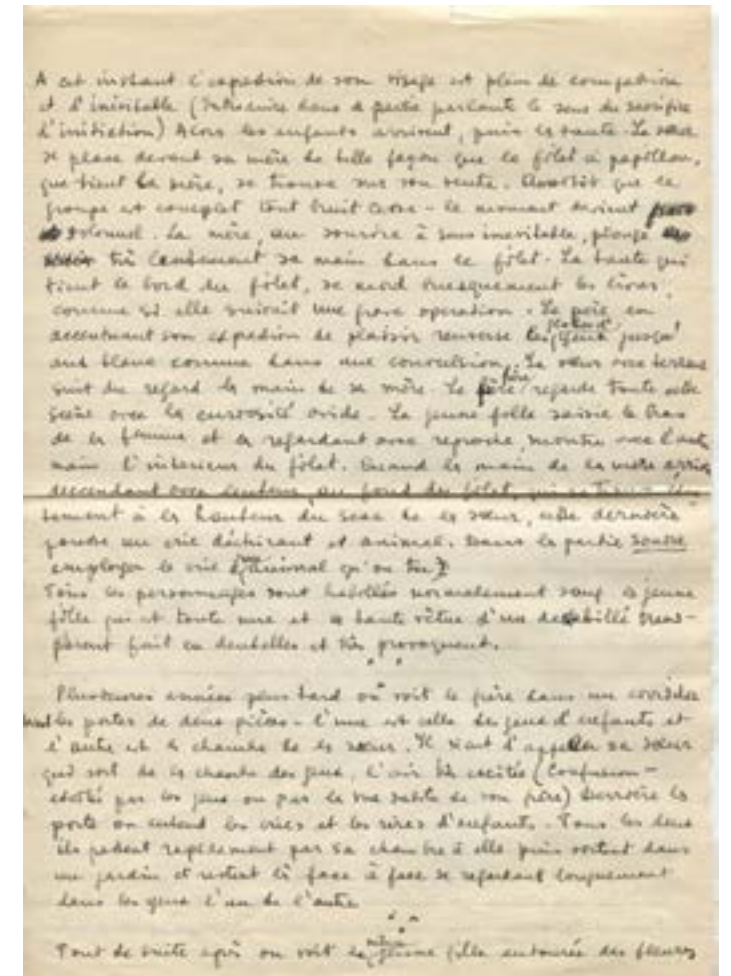 A cet instant l'expedion de son visage est plein de compassion
et d'inévitable (Introduire dans a partie parlante le sens du sacrifice
d'initiation) Alors les enfants arrivent, puis la tante. La sœur
se place devant sa mère de telle façon que le filet à papillon,
que tient la mère, se trouve sur son ventre. Aussitôt que le
groupe est complet tout bruit cesse - le moment devient
solennel. La mère, au sourire à sens inevitable, plonge
très lentement sa main dans le filet. La tante qui
tient le bord du filet, se mord brusquement les lèvres
comme si elle suivait une grave operation. Le père en
accentuant son expedion de plaisir renverse les yeux jusqu'
aux blanc comme dans une convulsion. La sœur avec terreur
suit du regard la main de sa mère. Le frère regarde toute cette
scène avec la curiosité avide. La jeune fille saisie le bras
de la femme et la regardant avec reproche, montre avec l'autre
main l'interieur du filet. Quand la main de la mère arrive
descendant avec lenteur, au fond du filet, qui se trouve
à la hauteur du sexe de la sœur, cette dernière
pousse un crie déchirant et animal. Dans la partie sonore
employer le crie d'animal qu'on tue
Tous les personnages sont habillés normalement sauf la jeune
fille qui est toute nue et la tante vêtue d'un deshabillé trans-
parent fait en dentelles et très provoquent.
Plusieures années plus tard on voit le frère dans un corridor
les portes de deux pièces - l'une est celle des jeux d'enfants et
l'autre est la chambre de la sœur. Il vient d'appeler sa sœur
qui sort de la chambre des jeux, l'air très excitée (Confusion -
excitée par les jeux ou par la vue subite de son frère) Derrière la
porte on entend les cries et les rires d'enfants. Tous les deux
ils passent rapidement par sa chambre à elle puis sortent dans
un jardin et restent là face à face se regardant longuement
dans les yeux l'un de l'autre
Tout de suite après on voit la même jeune fille entourée des fleurs